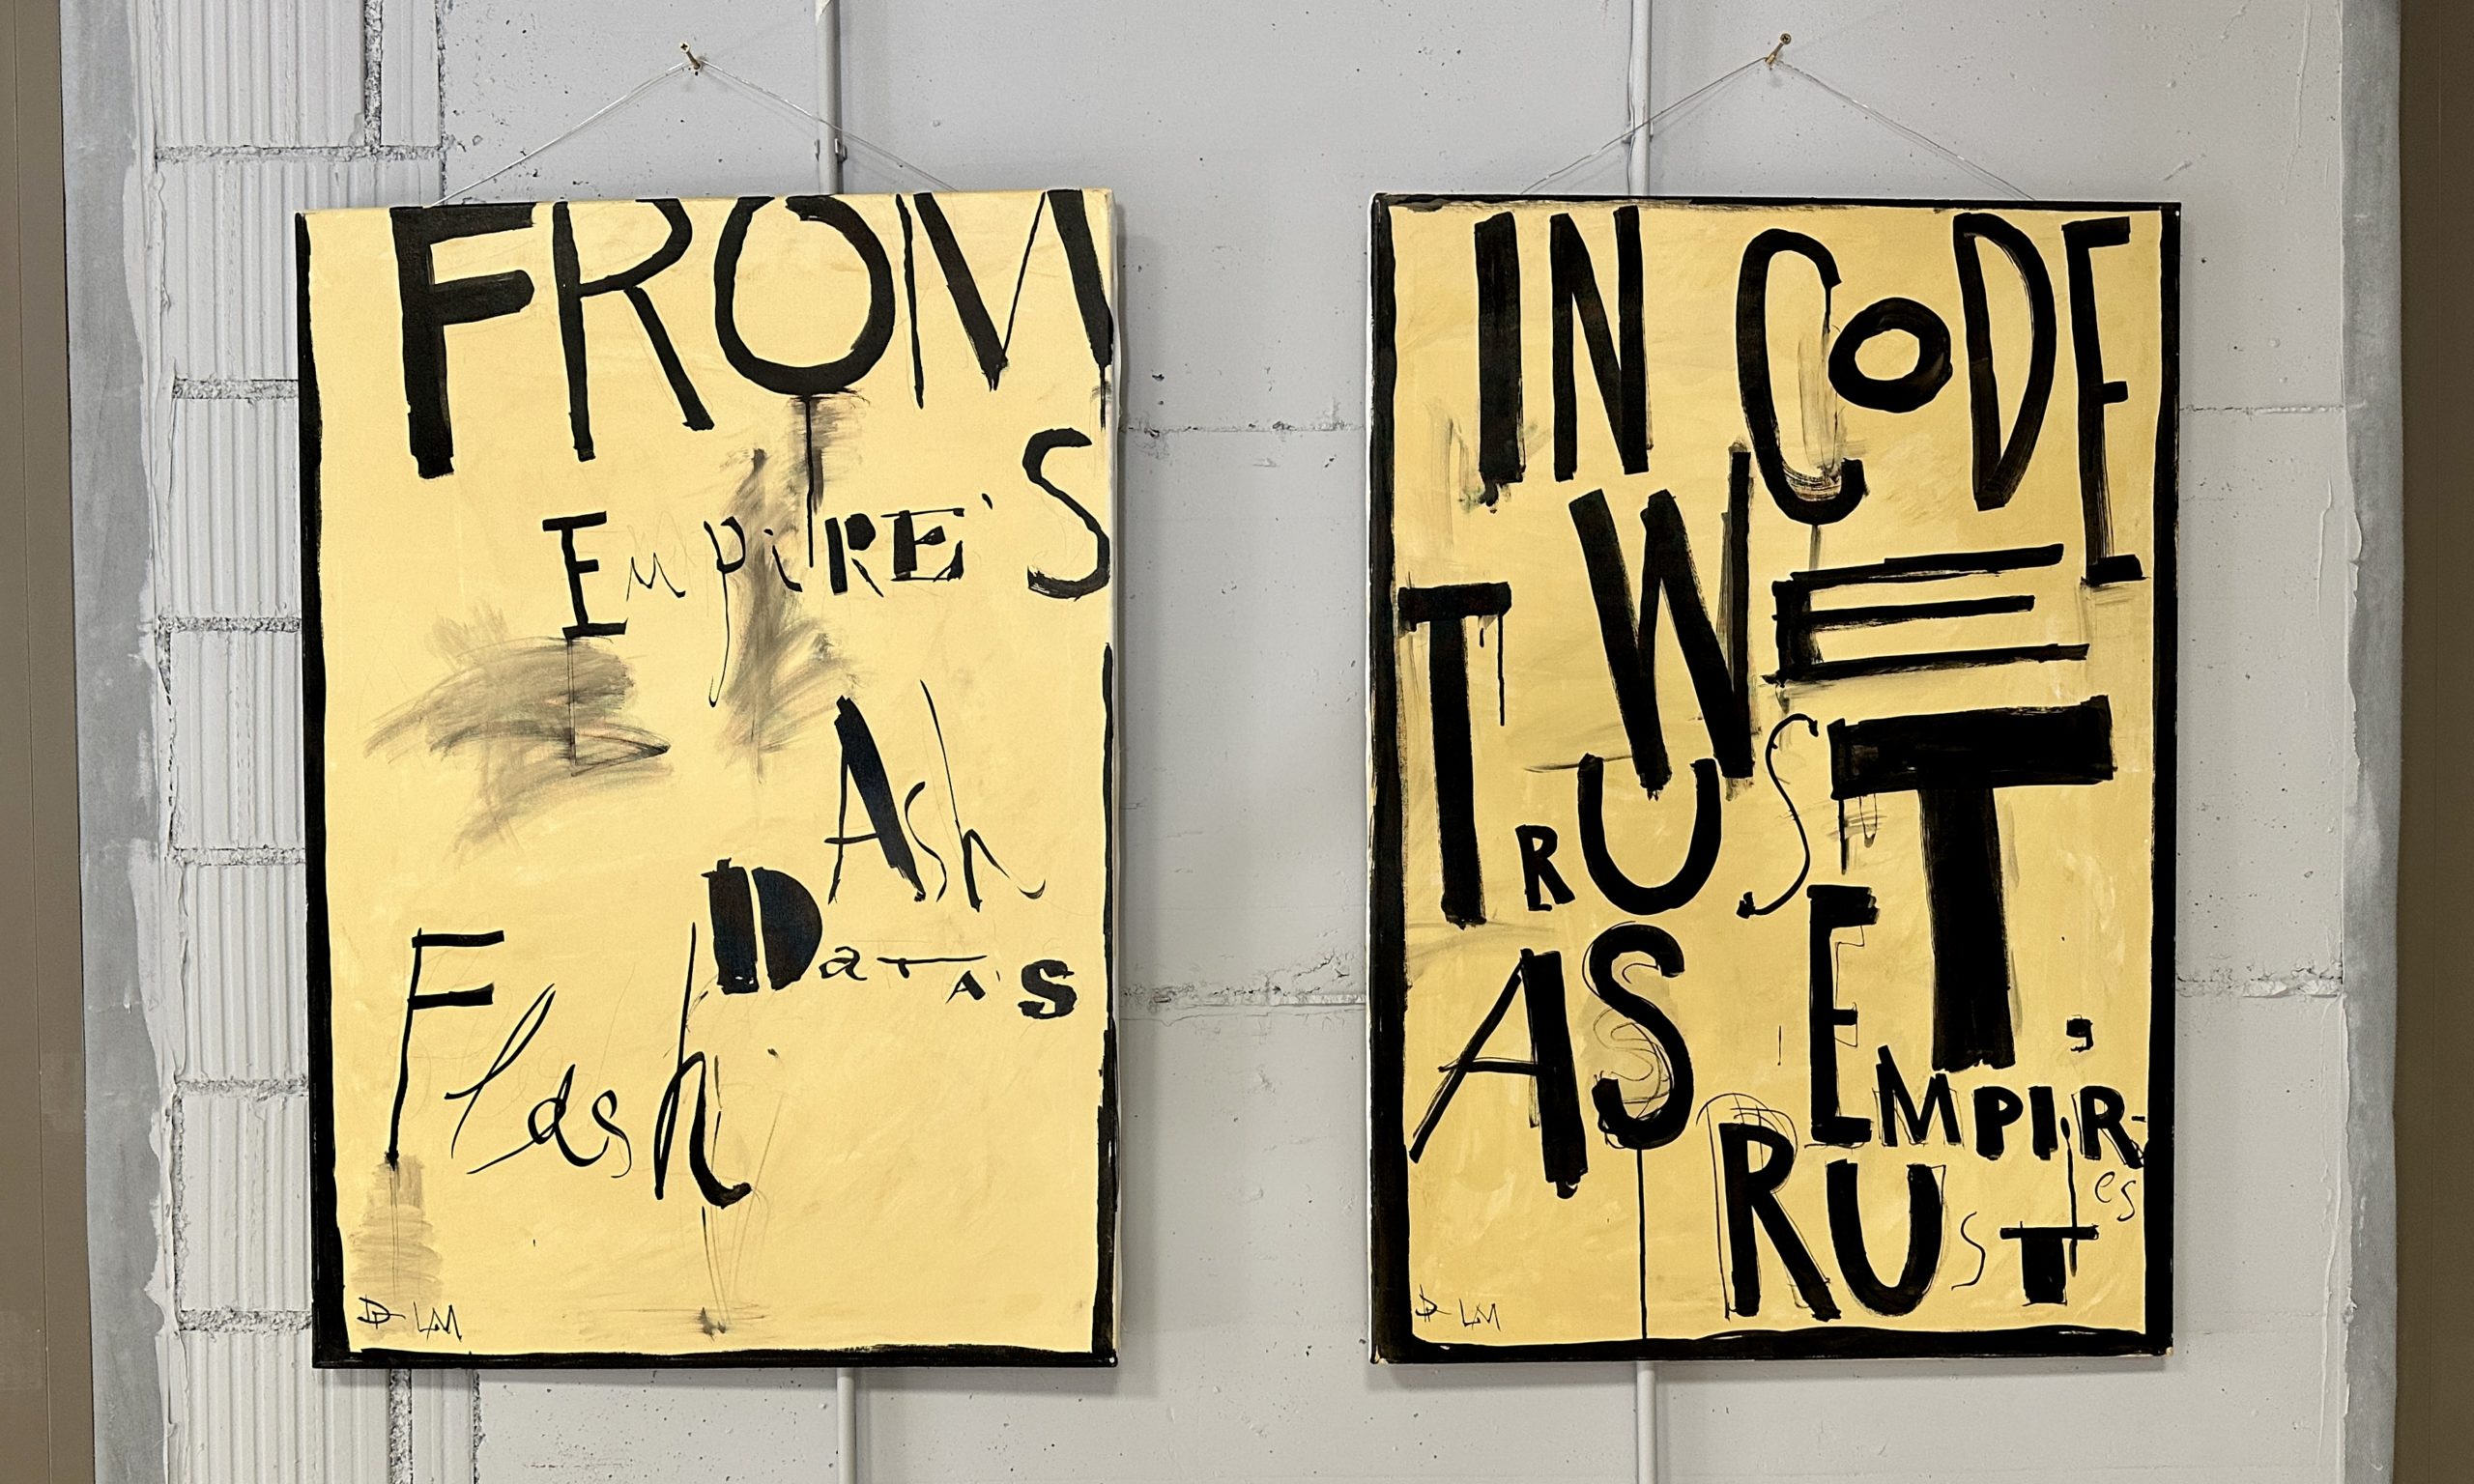 FROM
EmpiRE'S
Ash
DaTA'S
Flash
D LM
IN CODE
WE
TRUST,
AS EMPIR-
es
RUST
D LM